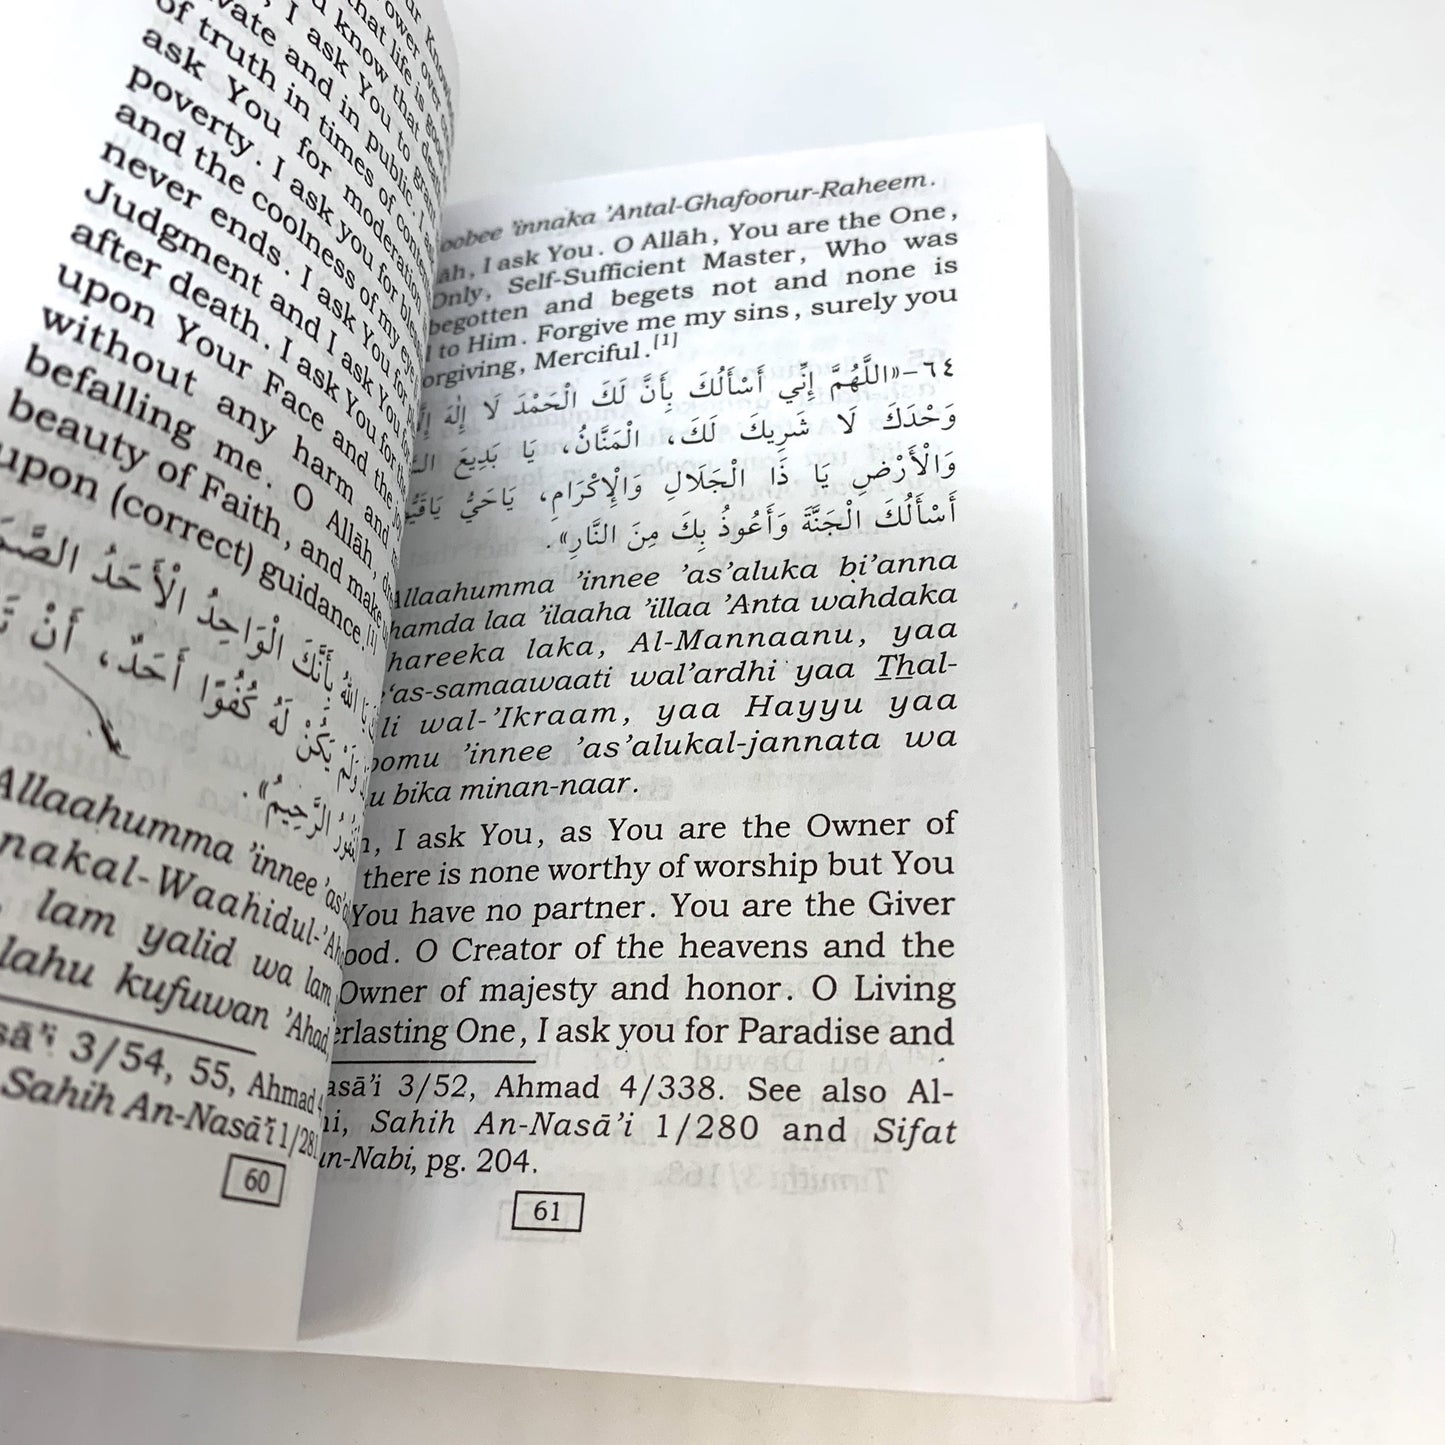 ur Knowle
ower over
that life is good
u know that death
I ask You to grant
vate and in public. I
of truth in times of
ask You for moderation
poverty. I ask you for
and the coolness of my eye
never ends. I ask You for
Judgment and I ask You for
after death. I ask You for the
upon Your Face and the
without any harm and
befalling me. O Allāh,
beauty of Faith, and make
upon (correct) guidance.[1]
يَا اللهُ بِأَنَّكَ الْوَاحِدُ الْأَحَدُ
وَلَمْ يَكُنْ لَهُ كُفُوًا أَحَدٌ، أَنْ
الرَّحِيمُ».
Allaahumma ’innee
nakal-Waahidul-
lam yalid wa lam
lahu kufuwan ’Ahad,
3/54, 55, Ahmad
Sahih An-Nasā’i 1/281
60
oobee ’innaka ’Antal-Ghafoorur-Raheem.
āh, I ask You. O Allāh, You are the One,
Only, Self-Sufficient Master, Who was
begotten and begets not and none is
to Him. Forgive me my sins, surely you
orgiving, Merciful.[1]
٦٤-«اللَّهُمَّ إِنِّي أَسْأَلُكَ بِأَنَّ لَكَ الْحَمْدَ لَا إِلٰهَ
وَحْدَكَ لَا شَرِيكَ لَكَ، الْمَنَّانُ، يَا بَدِيعَ
وَالْأَرْضِ يَا ذَا الْجَلَالِ وَالْإِكْرَامِ، يَاحَيُّ
أَسْأَلُكَ الْجَنَّةَ وَأَعُوذُ بِكَ مِنَ النَّارِ».
Allaahumma ’innee ’as’aluka bi’anna
hamda laa ’ilaaha ’illaa ’Anta wahdaka
hareeka laka, Al-Mannaanu, yaa
‘as-samaawaati wal’ardhi yaa Thal-
li wal-’Ikraam, yaa Hayyu yaa
oomu ’innee ’as’alukal-jannata wa
u bika minan-naar.
I ask You, as You are the Owner of
there is none worthy of worship but You
You have no partner. You are the Giver
ood. O Creator of the heavens and the
Owner of majesty and honor. O Living
erlasting One, I ask you for Paradise and
asā’i 3/52, Ahmad 4/338. See also Al-
ni, Sahih An-Nasā’i 1/280 and Sifat
un-Nabi, pg. 204.
61